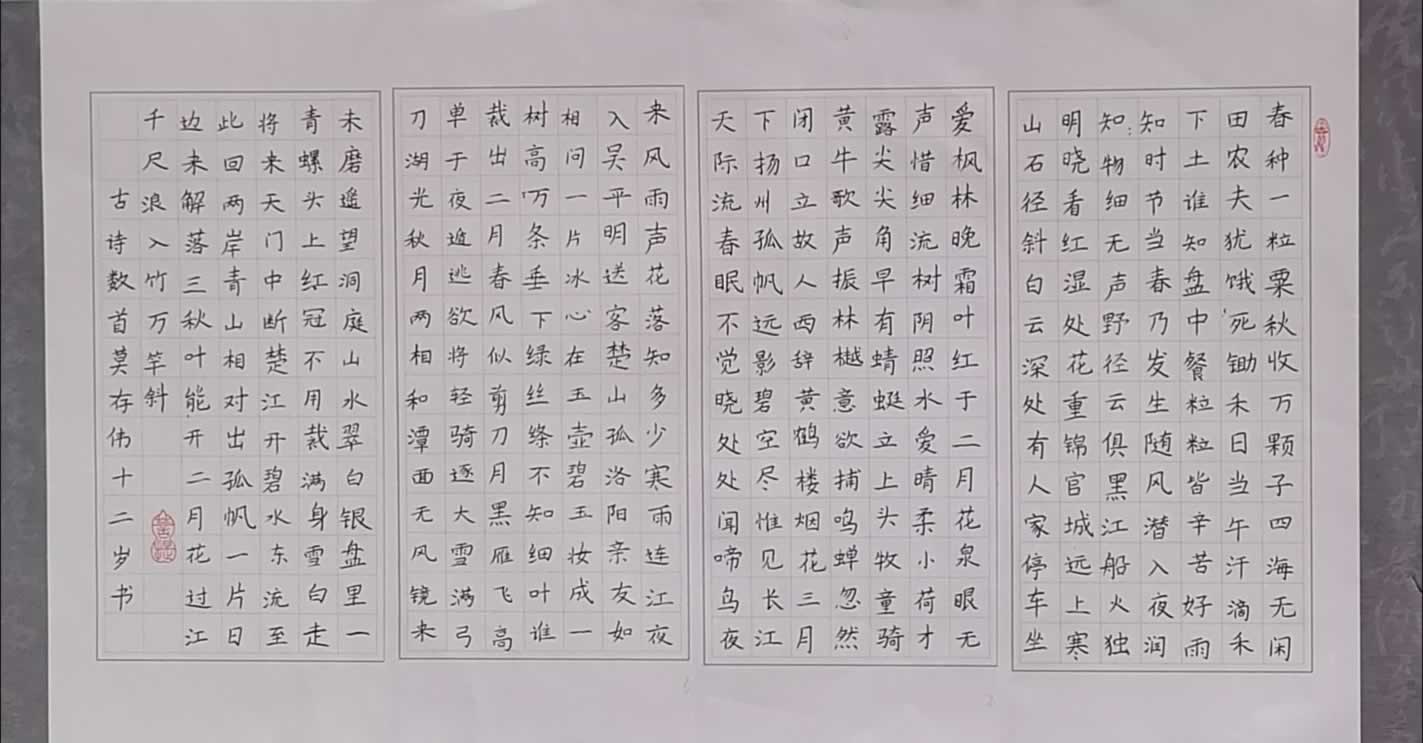 春种一粒粟秋收万颗子四海无闲
田农夫犹饿死锄禾日当午汗滴禾
下土谁知盘中餐粒粒皆辛苦好雨
知时节当春乃发生随风潜入夜润
知物细无声野径云俱黑江船火独
明晓看红湿处花重锦官城远上寒
山石径斜白云深处有人家停车坐
爱枫林晚霜叶红于二月花泉眼无
声惜细流树阴照水爱晴柔小荷才
露尖尖角早有蜻蜓立上头牧童骑
黄牛歌声振林樾意欲捕鸣蝉忽然
闭口立故人西辞黄鹤楼烟花三月
下扬州孤帆远影碧空尽惟见长江
天际流春眠不觉晓处处闻啼鸟夜
来风雨声花落知多少寒雨连江夜
入吴平明送客楚山孤洛阳亲友如
相问一片冰心在玉壶碧玉妆成一
树高万条垂下绿丝绦不知细叶谁
裁出二月春风似剪刀月黑雁飞高
单于夜遁逃欲将轻骑逐大雪满弓
刀湖光秋月两相和潭面无风镜未
磨遥望洞庭山水翠白银盘里一
青螺头上红冠不用裁满身雪白走
将来天门中断楚江开碧水东流至
此回两岸青山相对出孤帆一片日
边来解落三秋叶能开二月花过江
千尺浪入竹万竿斜
古诗数首莫存伟十二岁书